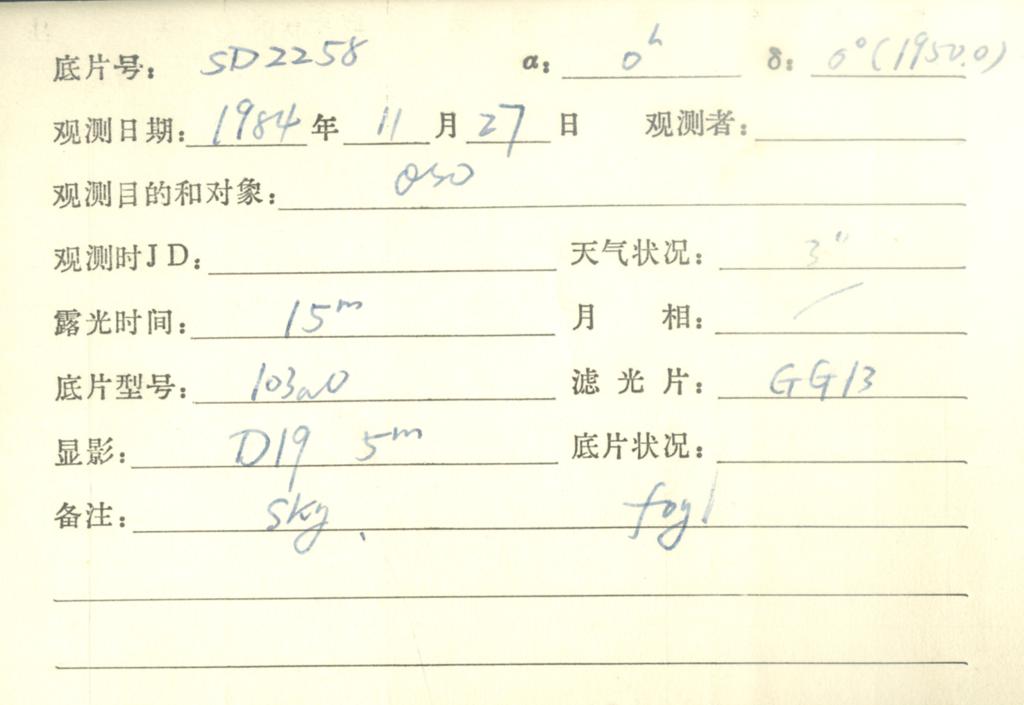 底片号: SD2258 α: 0h δ: 0°(1950.0)
观测日期: 1984 年 11 月 27 日 观测者:
观测目的和对象: QSO
观测时JD: 天气状况: 3"
露光时间: 15m 月 相: /
底片型号: 103aO 滤 光 片: GG13
显影: D19 5m 底片状况:
备注: sky. fog 1